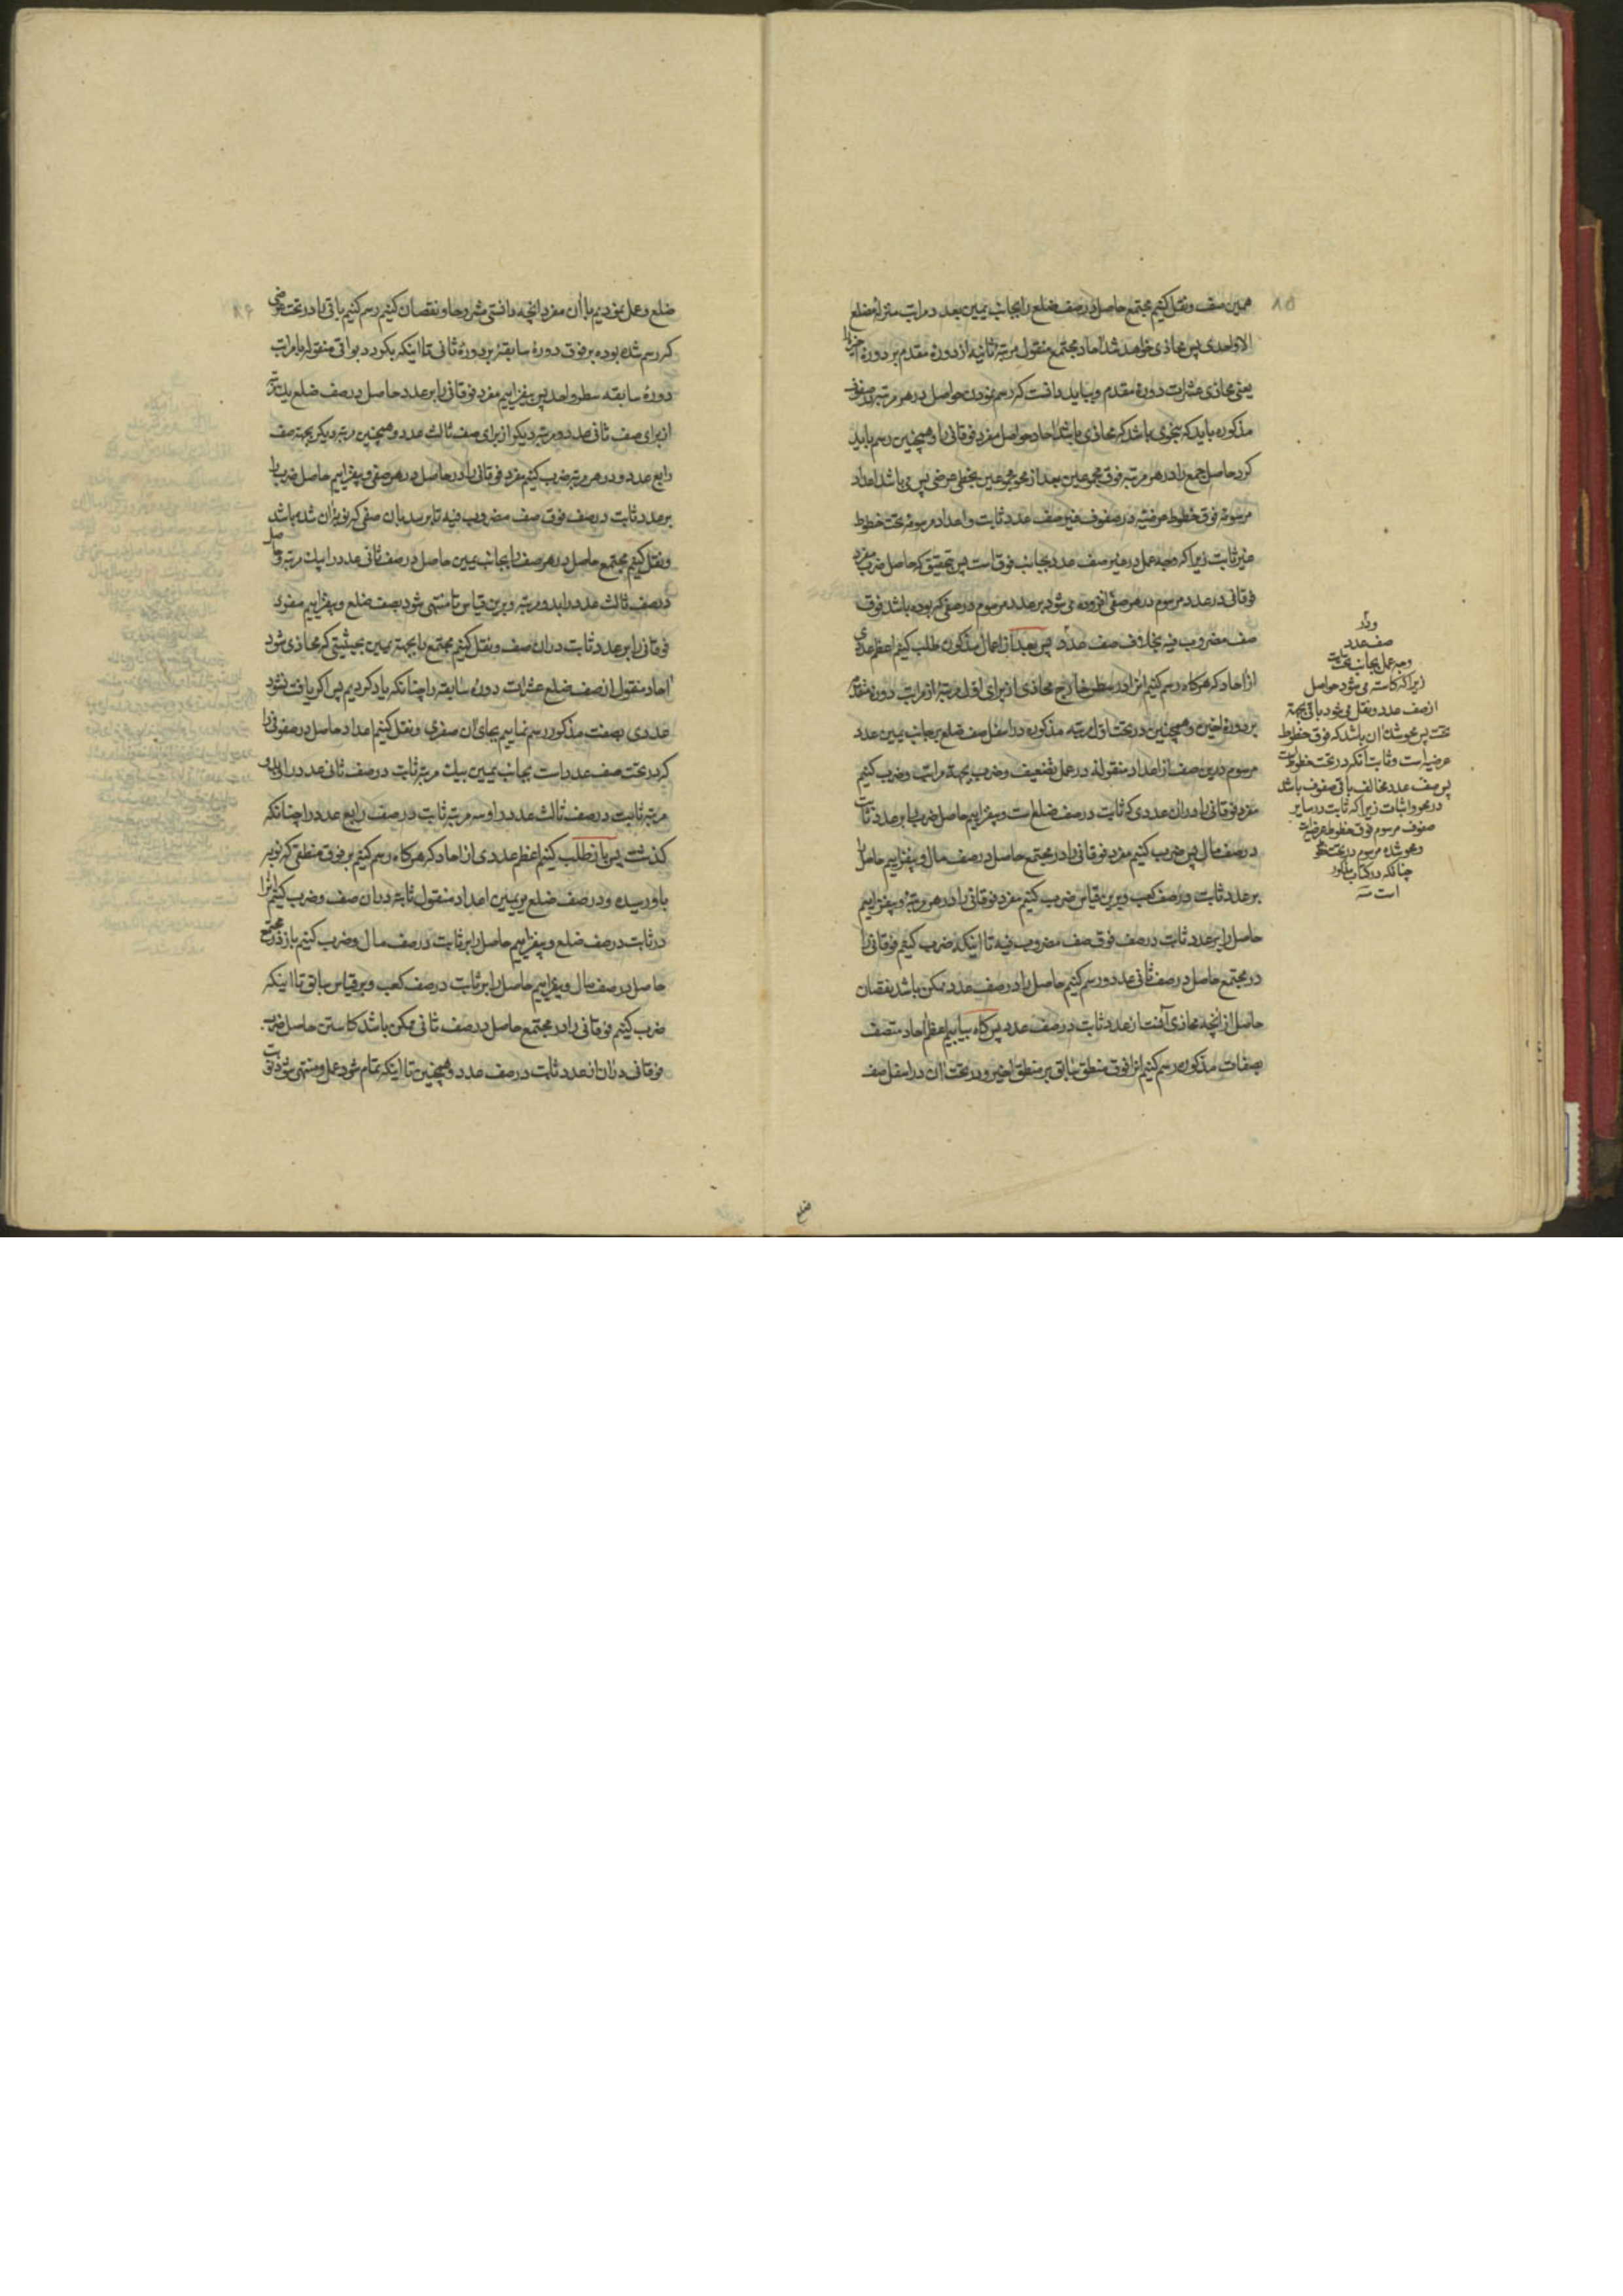 ۸۵
همین صف و نقل کنیم مجتمع حاصل در صف ضلع را بجانب یمین بعد مراتب منزله مضلع
الا واحدی پس محاذی خواهد شد احاد مجتمع منقول مرتبه ثانیه از دورهٔ مقدم بر دورهٔ اخیر را
یعنی محاذی عشرات دورهٔ مقدم و بباید دانست که رسم نمودن حواصل در هر مرتبه در صفوف
مذکوره باید که بنحوی باشد که محاذی باشد احاد حواصل مفرد فوقانی را و همچنین رسم باید
کرد حاصل جمع را در هر مرتبه فوق مجموعین بعد از محو مجموعین بخطی عرضی پس می باشد اعداد
مرسومه فوق خطوط عرضیه در صفوف غیر صف عدد ثابت و اعداد مرسومه تحت خطوط
غیر ثابت زیرا که وجه عمل در غیر صف عدد بجانب فوق است پس بتحقیق که حاصل ضرب مفرد
فوقانی در عدد مرسوم در هر صفی افزوده می شود بر عدد مرسوم در صفی که بوده باشد فوق
صف مضروب فیه بخلاف صف عدد پس بعد از اعمال مذکوره طلب کنیم اعظم عددی
از احاد که هرگاه رسم کنیم انرا در سطر خارج محاذی از برای اول مرتبه از مراتب دورهٔ مقدم
بر دورهٔ اخیره و همچنین در تحت اول مرتبه مذکوره در اسفل صف ضلع بر جانب یمین عدد
مرسوم درین صف از اعداد منقوله در عمل تضعیف و ضرب بجهة مراتب و ضرب کنیم
مفرد فوقانی را در ان عددی که ثابت در صف ضلع است و بیفزاییم حاصل ضرب را بر عدد ثابت
در صف مال پس ضرب کنیم مفرد فوقانی را در مجتمع حاصل در صف مال و بیفزاییم حاصل را
بر عدد ثابت در صف کعب و برین قیاس ضرب کنیم مفرد فوقانی را در هر مرتبه و بیفزاییم
حاصل را بر عدد ثابت در صف فوق صف مضروب فیه تا اینکه ضرب کنیم فوقانی را
در مجتمع حاصل در صف ثانی عدد و رسم کنیم حاصل را در صف عدد ممکن باشد نقصان
حاصل از انچه محاذی آنست از عدد ثابت در صف عدد پس گاه بیابیم اعظم احاد متصف
بصفات مذکوره رسم کنیم انرا فوق منطق سابق بر منطق اخیر و در تحت ان در اسفل صف
ودر
صف عدد
وجه عمل بجانب تحت است
زیرا که کاسته می شود حواصل
از صف عدد و نقل می شود باقی بجهة
تحت پس محو شده ان باشد که فوق خطوط
عرضیه است و ثابت آنکه در تحت خطوط است
پس صف عدد مخالف باقی صفوف باشد
در محو و اثبات زیرا که ثابت در سایر
صفوف مرسوم فوق خطوط عرضیه است
و محو شده مرسوم در تحت خطوط
چنانکه در کتاب مذکور
است منه
ضلع
۸۶
ضلع و عمل نمودیم با ان مفرد انچه دانستی مشروحا و نقصان کنیم رسم کنیم باقی را در تحت عرضی
که رسم شده بوده بر فوق دورهٔ سابقه بر دورهٔ ثانی تا اینکه بگردد بواقی منقوله با مراتب
دورهٔ سابقه سطر واحد پس بیفزاییم مفرد فوقانی را بر عدد حاصل در صف ضلع یک مرتبه
از برای صف ثانی عدد و مرتبه دیگر از برای صف ثالث عدد و همچنین مرتبه دیگر بجهة صف
رابع عدد و در هر مرتبه ضرب کنیم مفرد فوقانی را در حاصل در هر صفی و بیفزاییم حاصل ضرب را
بر عدد ثابت در صف فوق صف مضروب فیه تا برسد بان صفی که نوبه ان شده باشد
و نقل کنیم مجتمع حاصل در هر صف را بجانب یمین حاصل در صف ثانی عدد را بیک مرتبه و حاصل
در صف ثالث عدد را بدو مرتبه و برین قیاس تا منتهی شود بصف ضلع و بیفزاییم مفرد
فوقانی را بر عدد ثابت در ان صف و نقل کنیم مجتمع را بجهة یمین بحیثیتی که محاذی شود
احاد منقول از صف ضلع عشرات دورهٔ سابقه را چنانکه یاد کردیم پس اگر یافت نشود
عددی بصفت مذکور رسم نماییم بجای ان صفری و نقل کنیم اعداد حاصل در صفوفی را
که در تحت صف عدد است بجانب یمین بیک مرتبه ثابت در صف ثانی عدد را و بدو
مرتبه ثابت در صف ثالث عدد را و سه مرتبه ثابت در صف رابع عدد را چنانکه
گذشت پس باز طلب کنیم اعظم عددی از احاد که هرگاه رسم کنیم بر فوق منطقی که نوبه
باو رسیده و در صف ضلع بر یمین اعداد منقول ثابته در ان صف و ضرب کنیم انرا
در ثابت در صف ضلع و بیفزاییم حاصل را بر ثابت در صف مال و ضرب کنیم باز در مجتمع
حاصل در صف مال و بیفزاییم حاصل را بر ثابت در صف کعب و بر قیاس سابق تا اینکه
ضرب کنیم فوقانی را در مجتمع حاصل در صف ثانی ممکن باشد کاستن حاصل ضرب
فوقانی در ان از عدد ثابت در صف عدد و همچنین تا اینکه تمام شود عمل و منتهی شود